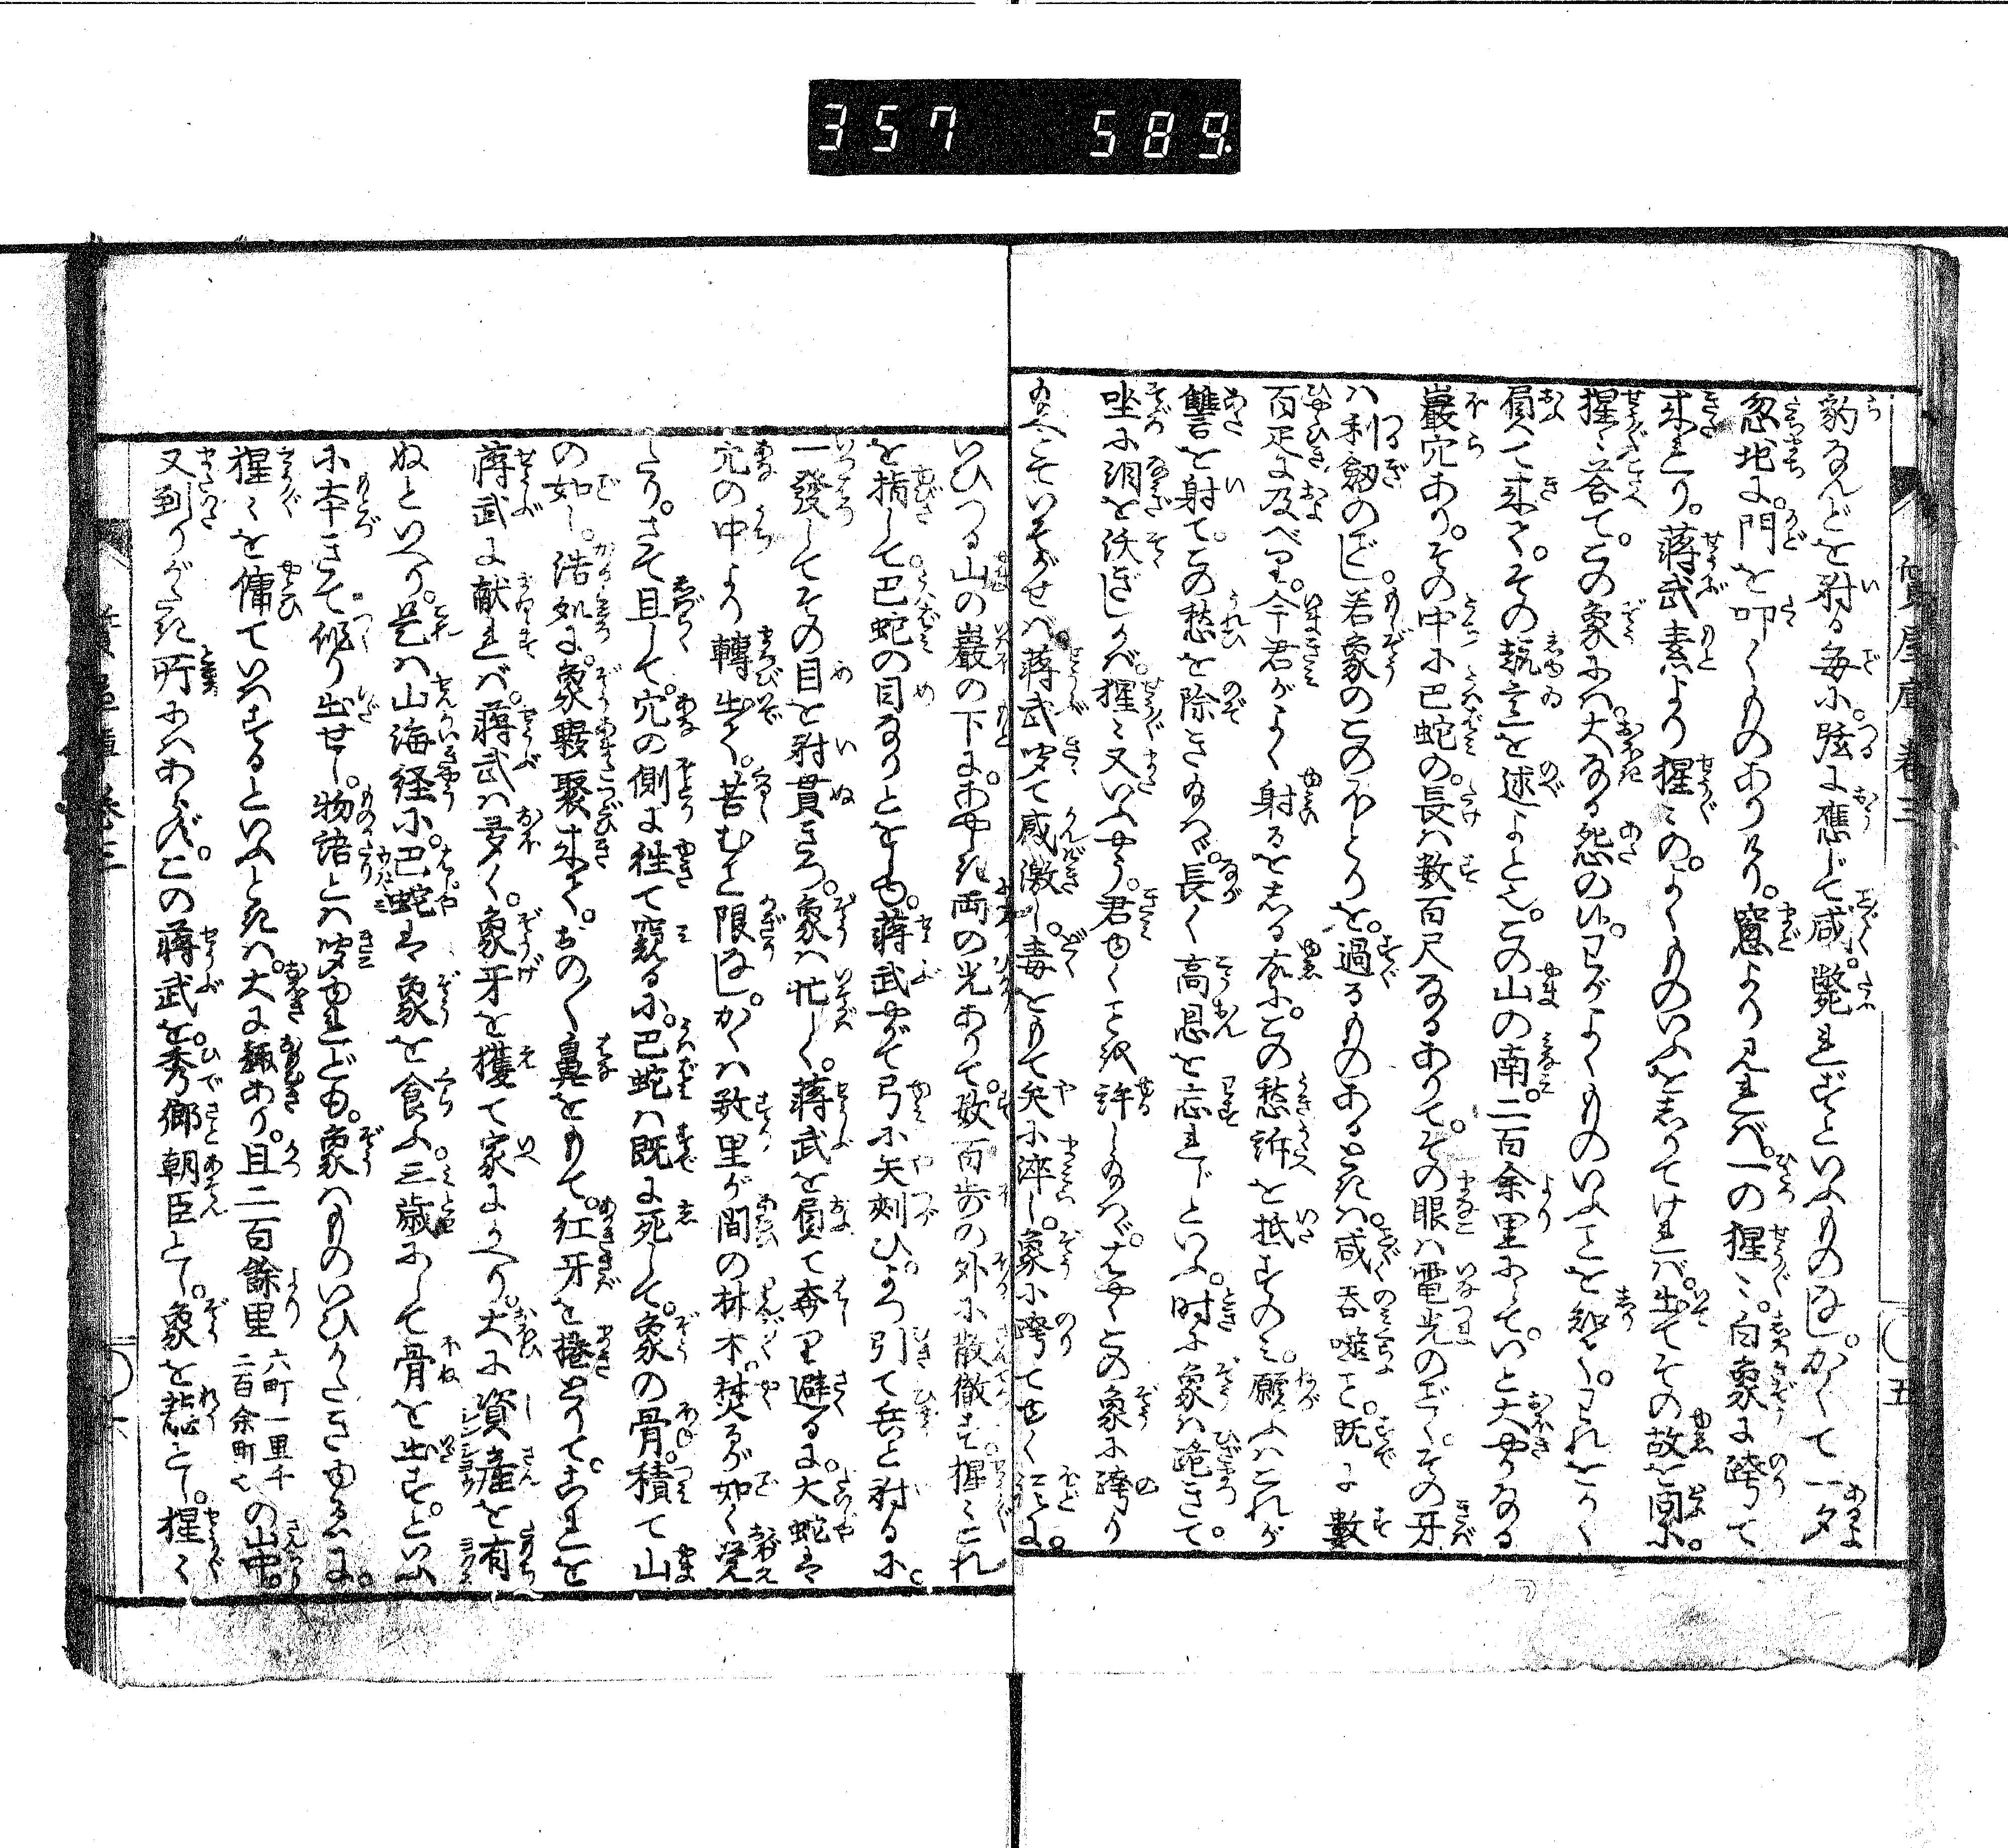 357 589
質屋庫 巻三 五
豹なんどを射る毎に。弦に應じて咸。斃れずといふものなし。かくて一夕
忽地に。門を叩くものありけり。窓より見れば。一の猩〻。白象に跨て
来れり。蒋武素より猩〻の。よくものいふをしりてければ。出てその故を問に。
猩〻答て。この象には。大なる怨のり。わがよくものいふことを知て。われをかく
負て来て。その執意を述よとて。この山の南。二百余里にして。いと大やうなる
巖穴あり。その中に巴蛇の。長は数百尺なるありて。その眼は電光のごとく。その牙
は利劔のごとし。若象のこのほとりを。過るものあるときは。咸呑噬こと。既に数
百疋に及べり。今君がよく射るをしる故に。この愁訴を抵すのみ。願ふはこれが
讐を射て。この愁を除き給へば。長く高恩を忘れじといふ。時に象は跪きて。
坐に泪を沃ぎしかば。猩〻又いふやう。君よくこを許し給はば。はやくこの象に跨り
給へといそがせば蒋武聞て感激し。毒をもて矢に淬し。象に跨てゆく程に。
いひつる山の巖の下に。あやしき両の光ありて。数百歩の外に散徹す。猩〻これ
を指して巴蛇の目なりとをしゆ。蒋武やがて弓に矢剡ひ。よつ引て兵と射るに。
一發してその目を射貫きつ。象は忙しく。蒋武を負て奔り避るに。大蛇は
穴の中より轉出て。苦むこと限なし。かくは数里が間の林木。焚るが如く覚
たり。さて且して。穴の側に往て窺るに。巴蛇は既に死して。象の骨。積て山
の如し。浩処に。象夥聚来て。おの〳〵鼻をもて。紅牙を捲とりて。これを
蒋武に献れば。蒋武は夛く。象牙を獲て家にかへり。大に資産を有
ぬといへり。是は山海経に。巴蛇は象を食ふ。三歳にして骨を出す。といふ
に本きて。作り出せし。物語とは聞ゆれども。象はものいひがたきゆゑに。
猩〻を傭ていはするといふときは。大に趣あり。且二百餘里六町一里千二百余町也の山中。
又到りがたき所にはあらず。この蒋武を。秀郷朝臣とし。象を龍とし。猩〻
質屋庫 巻三 六